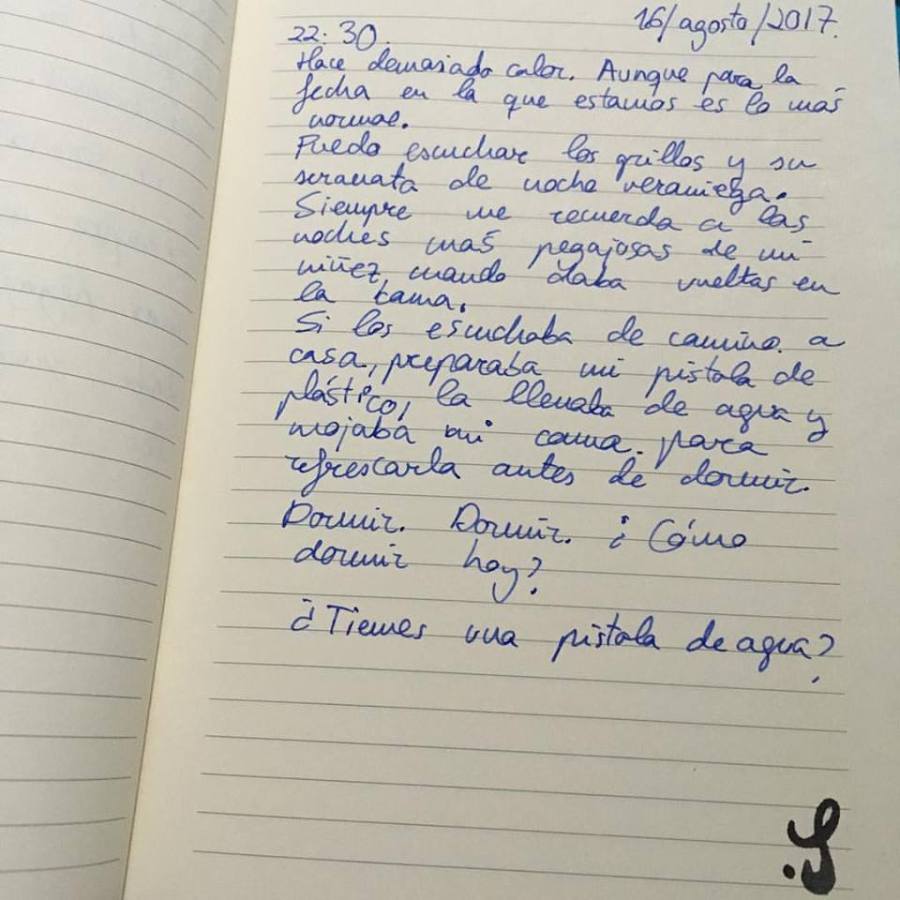 16/agosto/2017.
22:30.
Hace demasiado calor. Aunque para la
fecha en la que estamos es lo más
normal.
Puedo escuchar los grillos y su
seranata de noche veraniega.
Siempre me recuerda a las
noches más pegajosas de mi
niñez, cuando daba vueltas en
la cama.
Si los escuchaba de camino a
casa, preparaba mi pistola de
plástico, la llenaba de agua y
mojaba mi cama para
refrescarla antes de dormir.
Dormir. Dormir. ¿Cómo
dormir hoy?
¿Tienes una pistola de agua?